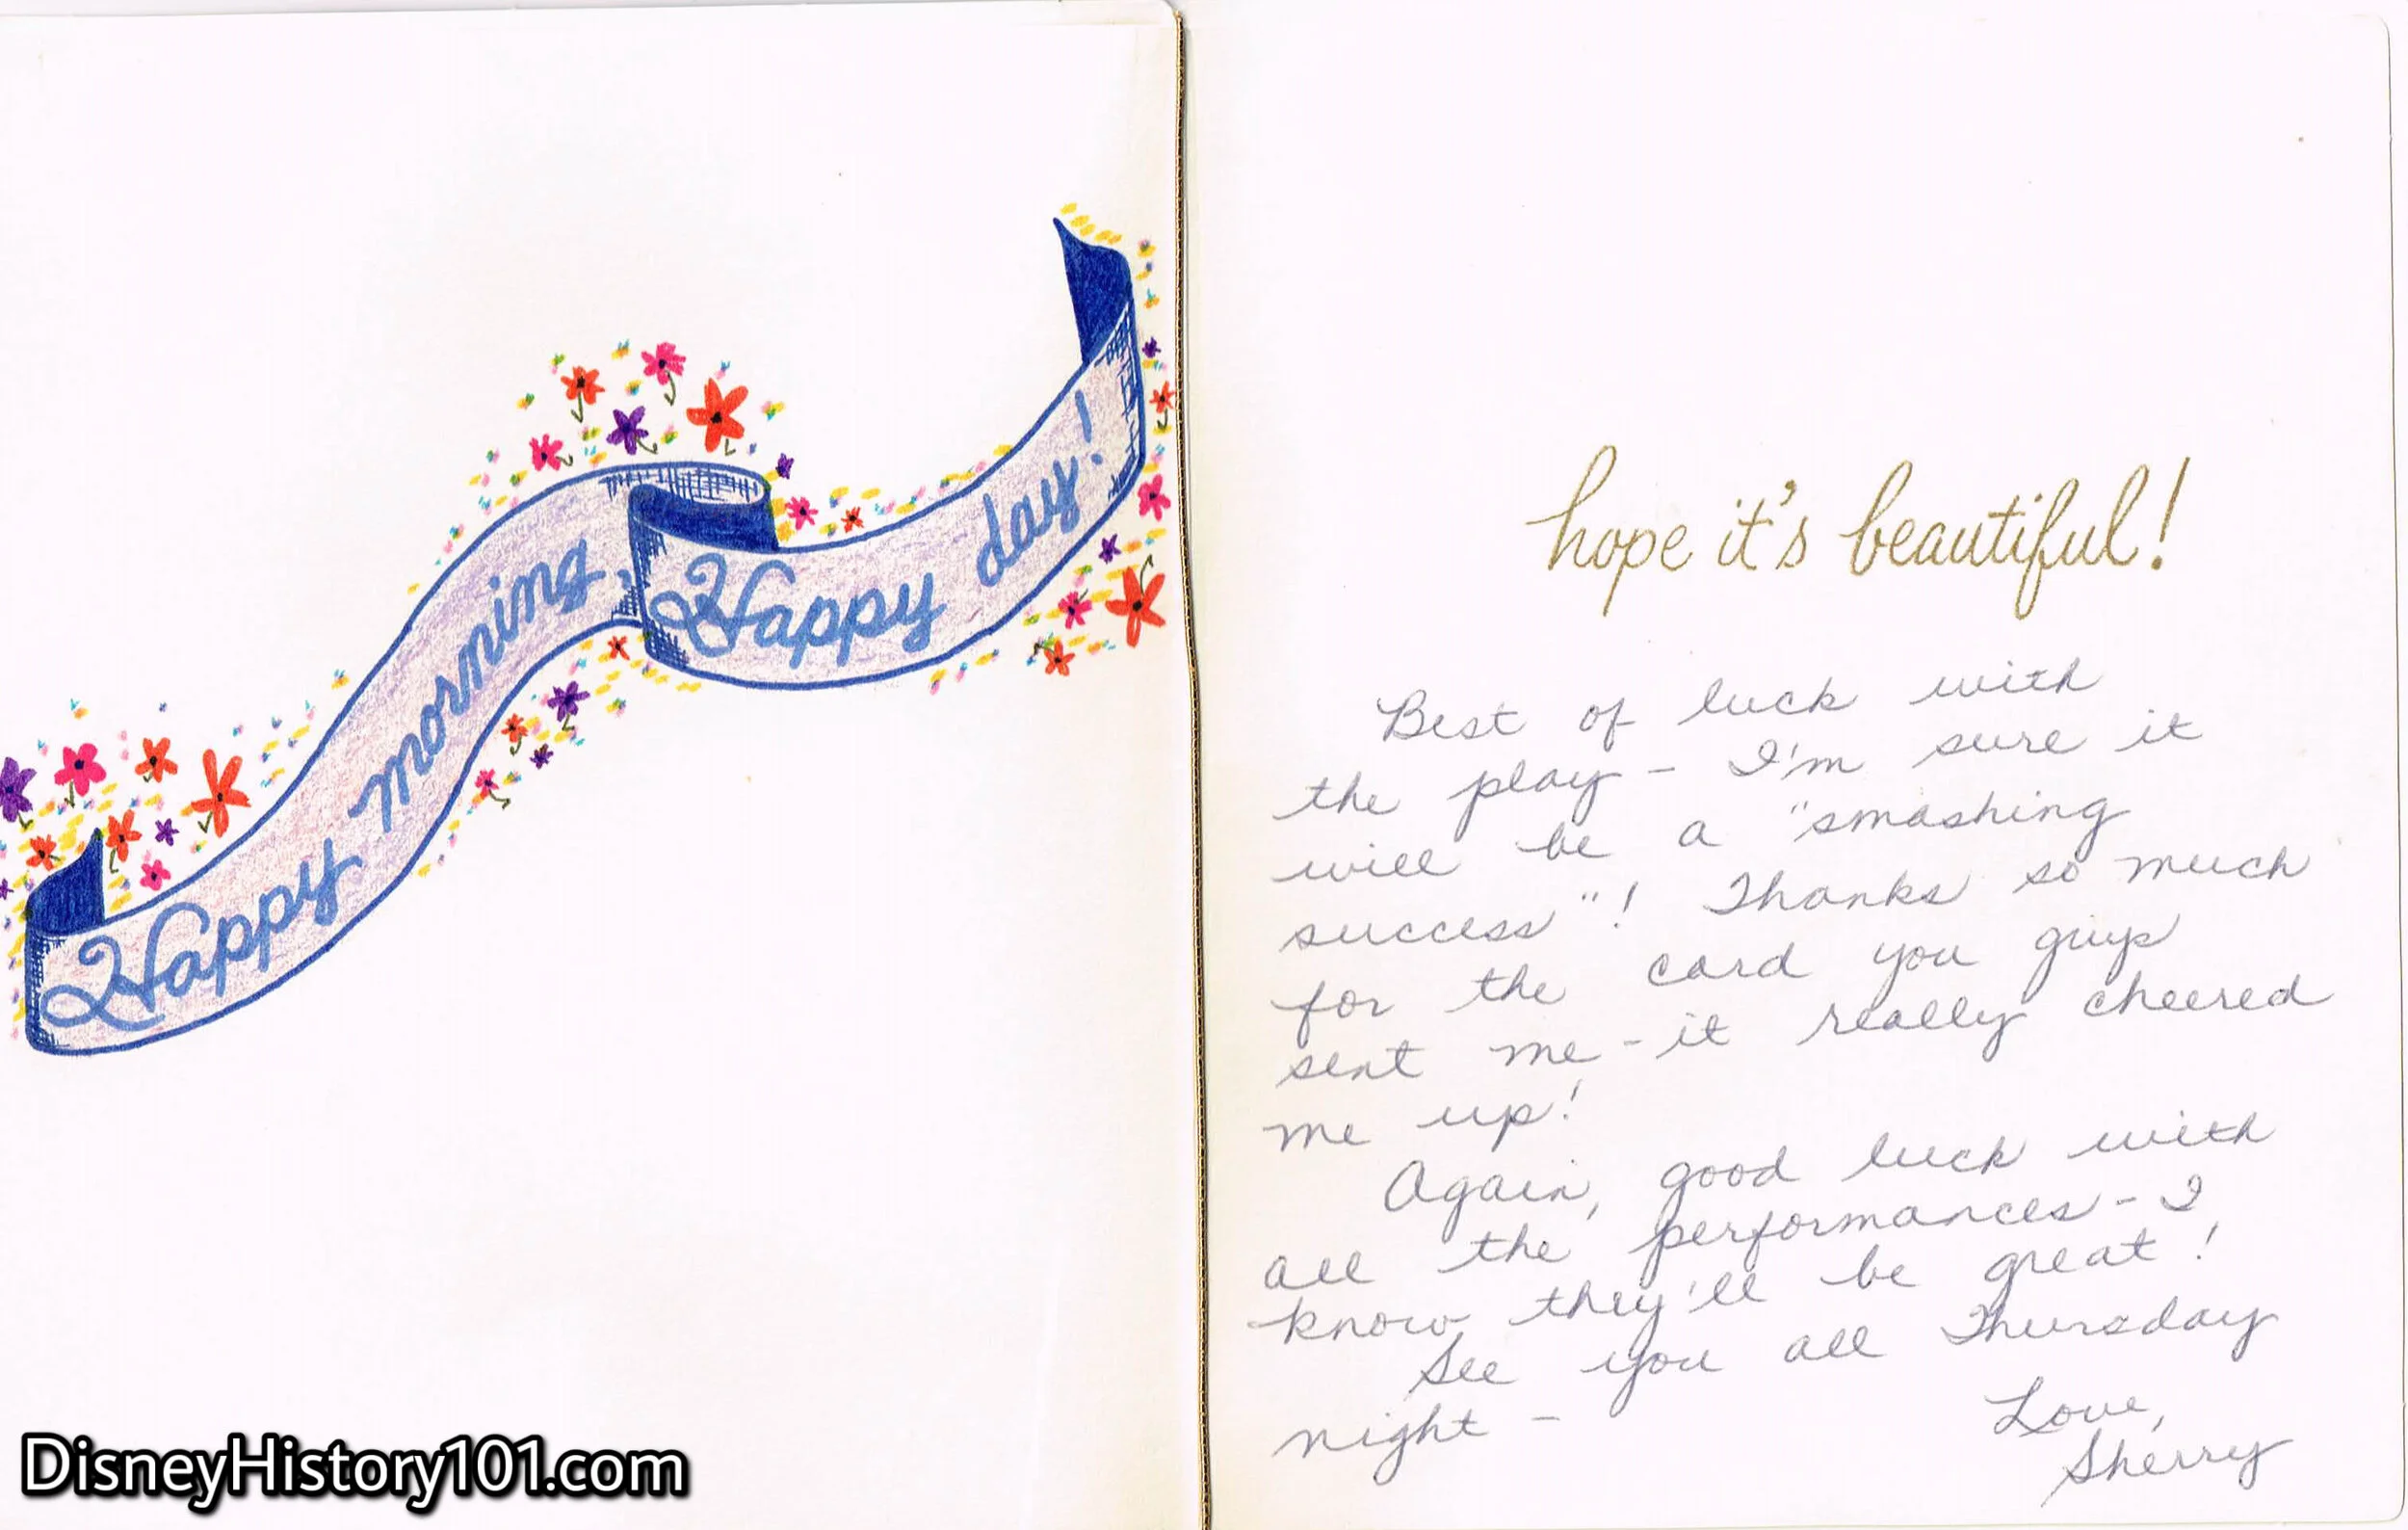 Happy morning,
Happy day!
hope it's beautiful!
Best of luck with
the play - I'm sure it
will be a "smashing
success"! Thanks so much
for the card you guys
sent me - it really cheered
me up!
Again, good luck with
all the performances - I
know they'll be great!
See you all Thursday
night -
Love,
Sherry
DisneyHistory101.com